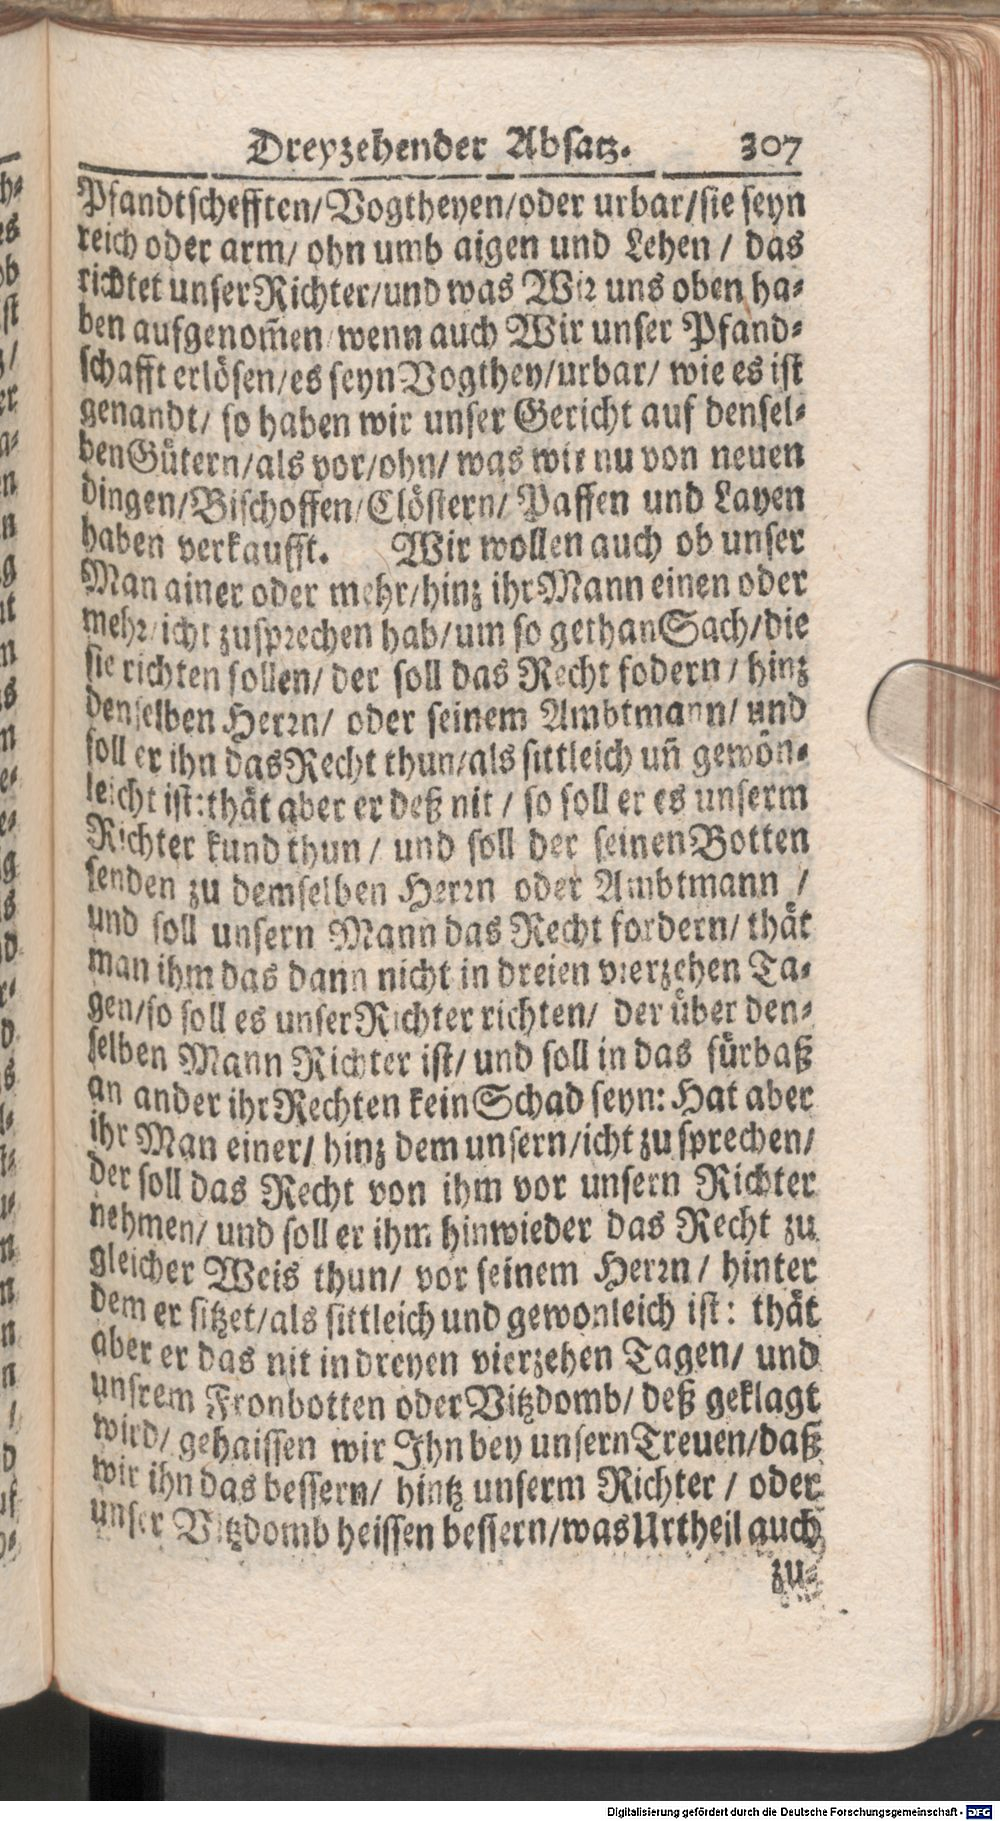 Dreyzehender Absatz. 307
Pfandtschefften/Vogtheyen/oder urbar/sie seyn
reich oder arm/ ohn umb aigen und Lehen / das
richtet unser Richter/und was Wir uns oben ha-
ben aufgenom̃en/wenn auch Wir unser Pfand-
schafft erlösen/es seyn Vogthey/urbar/ wie es ist
genandt/ so haben wir unser Gericht auf densel-
ben Gütern/als vor/ohn/ was wir nu von neuen
dingen/Bischoffen/Clöstern/ Paffen und Layen
haben verkaufft. Wir wollen auch ob unser
Man ainer oder mehr/hinz ihr Mann einen oder
mehr/icht zusprechen hab/um so gethan Sach/die
sie richten sollen/ der soll das Recht fodern / hinz
denselben Herrn/ oder seinem Ambtmann/ und
soll er ihn das Recht thun/als sittleich uñ gewön-
leicht ist:thät aber er deß nit / so soll er es unserm
Richter kund thun / und soll der seinen Botten
senden zu demselben Herrn oder Ambtmann /
und soll unsern Mann das Recht fordern/ thät
man ihm das dann nicht in dreien vierzehen Ta-
gen/so soll es unser Richter richten/ der über den-
selben Mann Richter ist/ und soll in das fürbaß
an ander ihr Rechten kein Schad seyn: Hat aber
ihr Man einer/ hinz dem unsern/icht zu sprechen/
der soll das Recht von ihm vor unsern Richter
nehmen/ und soll er ihm hinwieder das Recht zu
gleicher Weis thun/ vor seinem Herrn / hinter
dem er sitzet/als sittleich und gewonleich ist: thät
aber er das nit in dreyen vierzehen Tagen/ und
unsrem Fronbotten oder Vitzdomb/ deß geklagt
wird/ gehaissen wir Ihn bey unsern Treuen/daß
wir ihn das bessern/ hintz unserm Richter / oder
unser Vitzdomb heissen bessern/was Urtheil auch
zu-
Digitalisierung gefördert durch die Deutsche Forschungsgemeinschaft - DFG